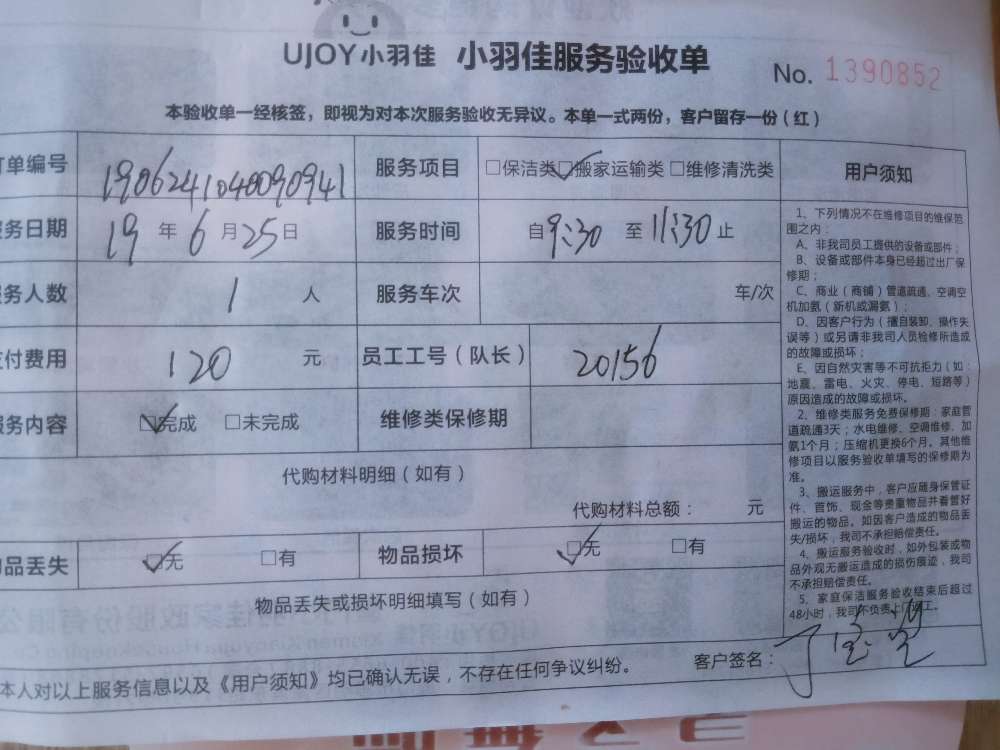 UJOY小羽佳 小羽佳服务验收单 No. 1390852
本验收单一经核签，即视为对本次服务验收无异议。本单一式两份，客户留存一份（红）
订单编号 1906241040090941 服务项目 □保洁类 ☑搬家运输类 □维修清洗类
服务日期 19 年 6 月 25 日 服务时间 自 9:30 至 11:30 止
服务人数 1 人 服务车次 车/次
支付费用 120 元 员工工号（队长） 20156
服务内容 ☑完成 □未完成 维修类保修期
代购材料明细（如有）
代购材料总额： 元
物品丢失 ☑无 □有 物品损坏 ☑无 □有
物品丢失或损坏明细填写（如有）
用户须知
1、下列情况不在维修项目的维保范
围之内：
A、非我司员工提供的设备或部件；
B、设备或部件本身已经超过出厂保
修期；
C、商业（商铺）管道疏通、空调空
机加氨（新机或漏氨）；
D、因客户行为（擅自装卸、操作失
误等）或另请非我司人员检修所造成
的故障或损坏；
E、因自然灾害等不可抗拒力（如：
地震、雷电、火灾、停电、短路等）
原因造成的故障或损坏。
2、维修类服务免费保修期：家庭管
道疏通3天；水电维修、空调维修、加
氨1个月；压缩机更换6个月。其他维
修项目以服务验收单填写的保修期为
准。
3、搬运服务中，客户应随身保管证
件、首饰、现金等贵重物品并看管好
搬运的物品。如因客户造成的物品丢
失/损坏，我司不承担赔偿责任。
4、搬运服务验收时，如外包装或物
品外观无搬运造成的损伤痕迹，我司
不承担赔偿责任。
5、家庭保洁服务验收结束后超过
48小时，我司不负责上门返工。
本人对以上服务信息以及《用户须知》均已确认无误，不存在任何争议纠纷。 客户签名：